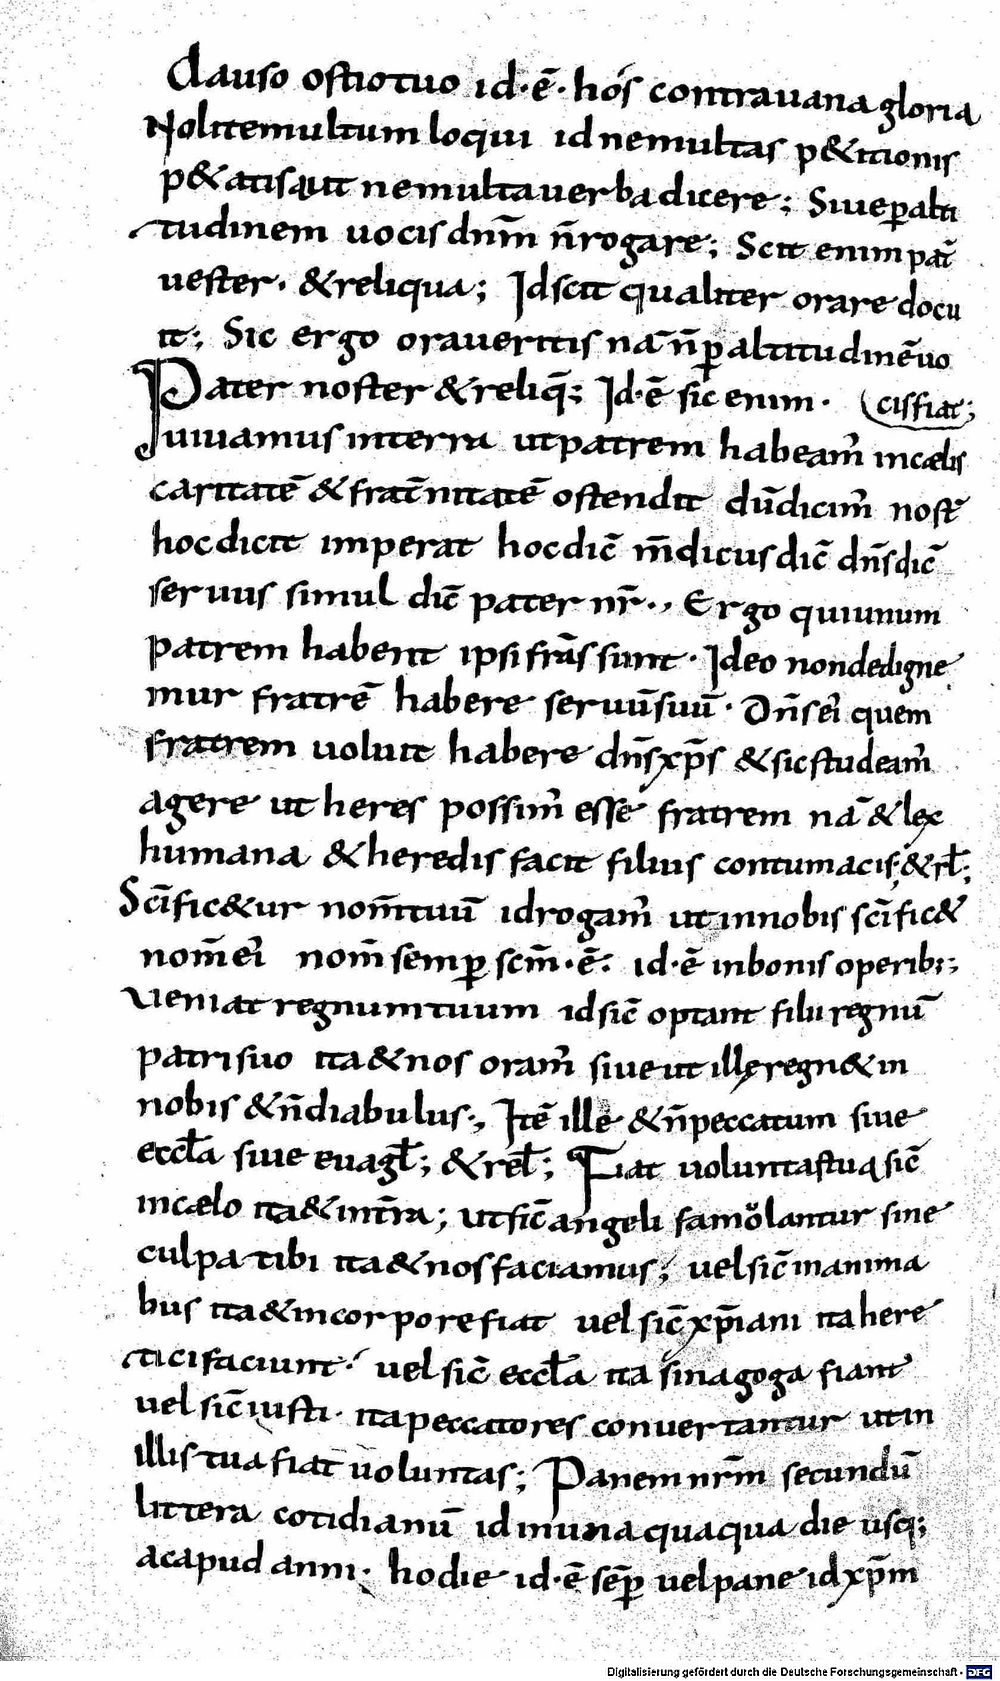 Clauso ostio tuo id·ē· hós contra uana gloria
Nolite multum loqui id ne multas p&itionis
p&atis aut ne multa uerba dicere; Siue ꝑ alti
tudinem uocis dn̄m n̄ rogare; Scit enim pat̄
uester· & reliqua; Id scit qualiter orare docu
it; Sic ergo oraueritis nā n̄ ꝑ altitudinē uo
Pater noster & reliq̄; Id·ē sic enim· cis fiat;
uiuamus in terra ut patrem habeam̄ in cælis
caritatē & frat̄nitatē ostendit dū dicim̄ nost̄
hoc dicit imperat hoc dic̄ m̄dicus dic̄ dn̄s dic̄
seruus simul dic̄ pater nr̄·, Ergo qui unum
patrem habent ipsi frās sunt· Ideo non dedigne
mur fratrē habere seruū suū· Dn̄s ei quem
fratrem uoluit habere dn̄s xp̄s & sic studeam̄
agere ut heres possim̄ esse fratrem nā & lex
humana & heredis facit filius contumacis; & rł;
Sc̄ific&ur nom̄ tuū id rogam̄ ut in nobis sc̄ific&
nom̄ ei nom̄ semꝑ scm̄·ē· id·ē in bonis operib;
Ueniat regnum tuum id sic̄ optant filii regnū
patri suo ita & nos oram̄ siue ut ille regn& in
nobis & n̄ diabulus·, Itē ille & n̄ peccatum siue
eccła siue euagł; & reł; Fiat uoluntas tua sic̄
in cælo ita & in t̄ra; ut sic̄ angeli famolantur sine
culpa tibi ita & nos faciamus; uel sic̄ in anima
bus ita & in corpore fiat uel sic̄ xp̄iani ita here
tici faciunt· uel sic̄ eccła ita sinagoga fiant
uel sic̄ iusti· ita peccatores conuertantur ut in
illis tua fiat uoluntas; Panem nr̄m secundū
littera cotidianū id in una quaqua die usq;
ac apud anni· hodie id·ē sēꝑ uel pane id xp̄m
Digitalisierung gefördert durch die Deutsche Forschungsgemeinschaft - DFG